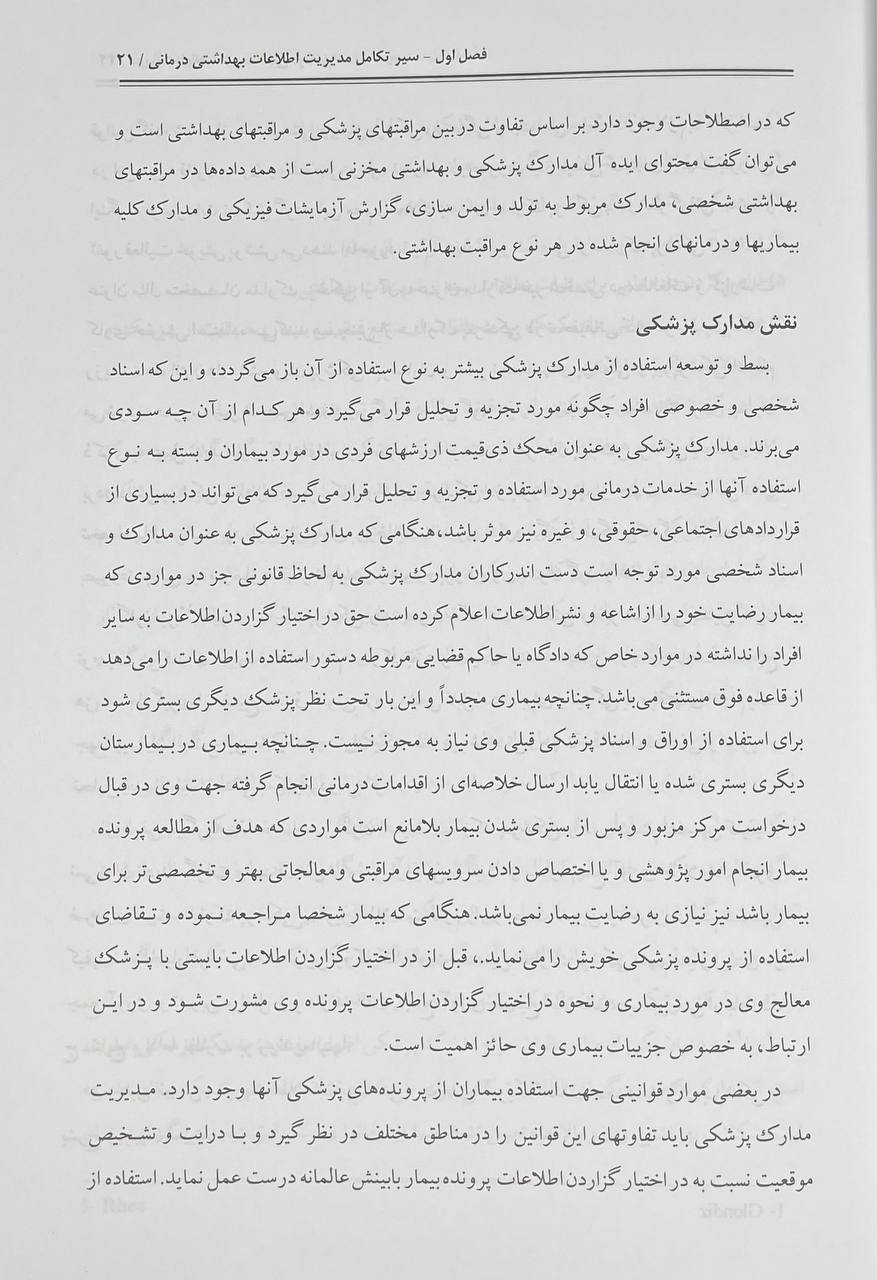 فصل اول - سیر تکامل مدیریت اطلاعات بهداشتی درمانی / ۲۱
که در اصطلاحات وجود دارد بر اساس تفاوت در بین مراقبتهای پزشکی و مراقبتهای بهداشتی است و
می‌توان گفت محتوای ایده آل مدارک پزشکی و بهداشتی مخزنی است از همه داده‌ها در مراقبتهای
بهداشتی شخصی، مدارک مربوط به تولد و ایمن سازی، گزارش آزمایشات فیزیکی و مدارک کلیه
بیماریها و درمانهای انجام شده در هر نوع مراقبت بهداشتی.
نقش مدارک پزشکی
بسط و توسعه استفاده از مدارک پزشکی بیشتر به نوع استفاده از آن باز می‌گردد، و این که اسناد
شخصی و خصوصی افراد چگونه مورد تجزیه و تحلیل قرار می‌گیرد و هر کدام از آن چه سودی
می‌برند. مدارک پزشکی به عنوان محک ذی‌قیمت ارزشهای فردی در مورد بیماران و بسته به نوع
استفاده آنها از خدمات درمانی مورد استفاده و تجزیه و تحلیل قرار می‌گیرد که می‌تواند در بسیاری از
قراردادهای اجتماعی، حقوقی، و غیره نیز موثر باشد،هنگامی که مدارک پزشکی به عنوان مدارک و
اسناد شخصی مورد توجه است دست اندرکاران مدارک پزشکی به لحاظ قانونی جز در مواردی که
بیمار رضایت خود را از اشاعه و نشر اطلاعات اعلام کرده است حق در اختیار گزاردن اطلاعات به سایر
افراد را نداشته در موارد خاص که دادگاه یا حاکم قضایی مربوطه دستور استفاده از اطلاعات را می‌دهد
از قاعده فوق مستثنی می‌باشد. چنانچه بیماری مجدداً و این بار تحت نظر پزشک دیگری بستری شود
برای استفاده از اوراق و اسناد پزشکی قبلی وی نیاز به مجوز نیست. چنانچه بیماری در بیمارستان
دیگری بستری شده یا انتقال یابد ارسال خلاصه‌ای از اقدامات درمانی انجام گرفته جهت وی در قبال
درخواست مرکز مزبور و پس از بستری شدن بیمار بلامانع است مواردی که هدف از مطالعه پرونده
بیمار انجام امور پژوهشی و یا اختصاص دادن سرویسهای مراقبتی ومعالجاتی بهتر و تخصصی‌تر برای
بیمار باشد نیز نیازی به رضایت بیمار نمی‌باشد. هنگامی که بیمار شخصا مراجعه نموده و تقاضای
استفاده از پرونده پزشکی خویش را می‌نماید.، قبل از در اختیار گزاردن اطلاعات بایستی با پزشک
معالج وی در مورد بیماری و نحوه در اختیار گزاردن اطلاعات پرونده وی مشورت شود و در این
ارتباط، به خصوص جزییات بیماری وی حائز اهمیت است.
در بعضی موارد قوانینی جهت استفاده بیماران از پرونده‌های پزشکی آنها وجود دارد. مدیریت
مدارک پزشکی باید تفاوتهای این قوانین را در مناطق مختلف در نظر گیرد و با درایت و تشخیص
موقعیت نسبت به در اختیار گزاردن اطلاعات پرونده بیمار بابینش عالمانه درست عمل نماید. استفاده از